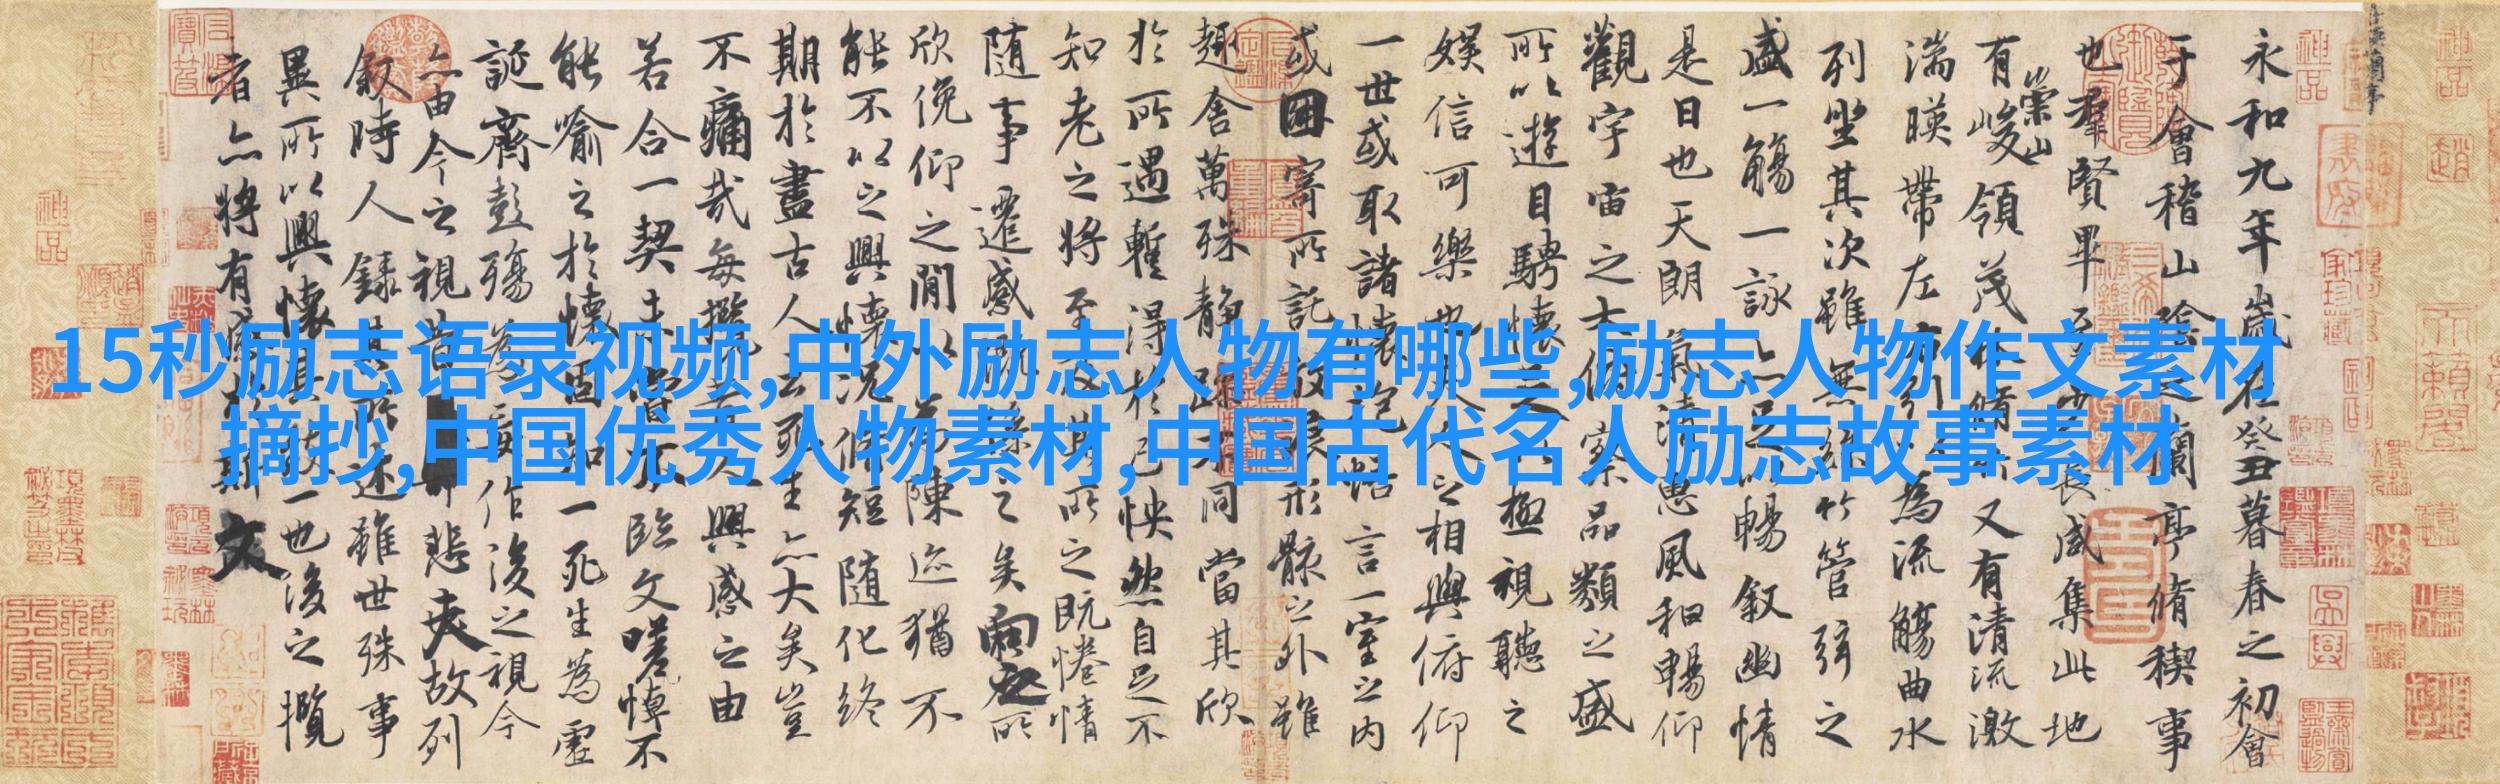 15秒励志语录视频,中外励志人物有哪些,励志人物作文素材
摘抄,中国优秀人物素材,中国古代名人励志故事素材
永和九年歲在癸丑暮春之初會
于會稽山陰之蘭亭脩稧事
也羣賢畢至少長咸集此地
有崇山峻領茂林脩竹又有清流激
湍暎帶左右引以為流觴曲水
列坐其次雖無絲竹管弦之
盛一觴一詠亦足以暢叙幽情
是日也天朗氣清惠風和暢仰
觀宇宙之大俯察品類之盛
所以遊目騁懷足以極視聽之
娛信可樂也夫人之相與俯仰
一世或取諸懷抱悟言一室之內
或因寄所託放浪形骸之外雖
趣舍萬殊静躁不同當其欣
於所遇蹔得於己怏然自足不
知老之將至及其所之既惓情
随事遷感慨係之矣向之所
欣俛仰之閒以為陳迹猶不
能不以之興懷況脩短随化終
期於盡古人云死生亦大矣豈
不痛哉每攬昔人興感之由
若合一契未嘗不臨文嗟悼不
能喻之於懷固知一死生為虛
誕齊彭殤為妄作後之視今
亦由今之視昔悲夫故列
叙時人錄其所述雖世殊事
異所以興懷其致一也後之攬
者亦將有感於斯文